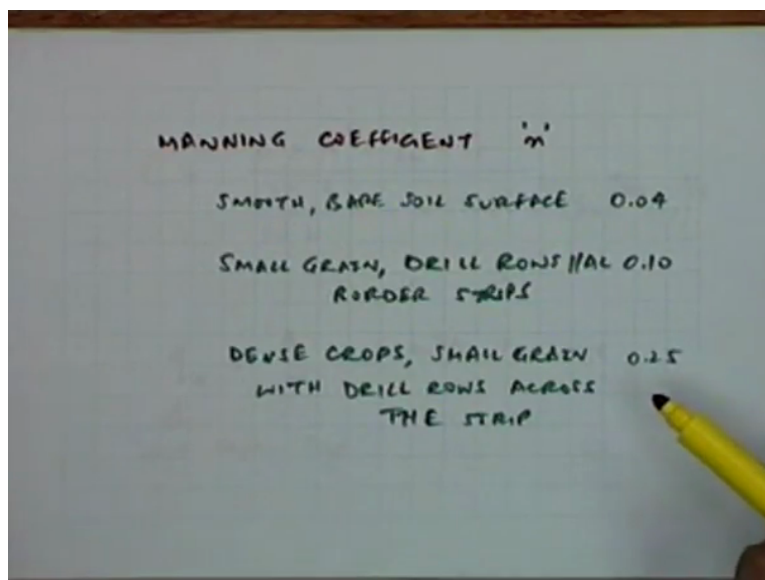 MANNING COEFFICIENT 'n'
SMOOTH, BARE SOIL SURFACE 0.04
SMALL GRAIN, DRILL ROWS //AL 0.10
BORDER STRIPS
DENSE CROPS, SMALL GRAIN 0.25
WITH DRILL ROWS ACROSS
THE STRIP